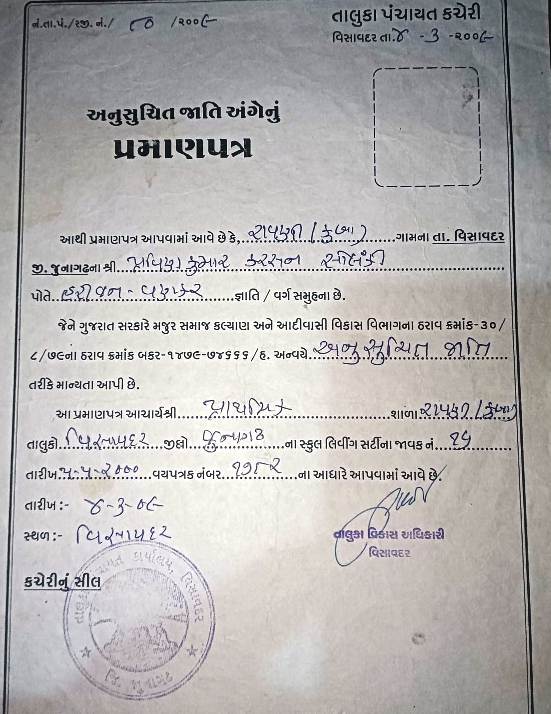 નં.તા.પં./રજી.નં./ ૮૦ /૨૦૦૯
તાલુકા પંચાયત કચેરી
વિસાવદર તા.૪ -૩ -૨૦૦૯
અનુસુચિત જાતિ અંગેનું
પ્રમાણપત્ર
આથી પ્રમાણપત્ર આપવામાં આવે છે કે, રાવણી (કુબા) ગામના તા. વિસાવદર
જી. જુનાગઢના શ્રી પ્રવિણકુમાર કરસન સોલંકી
પોતે હરીજન - વણકર જ્ઞાતિ / વર્ગ સમુહના છે.
જેને ગુજરાત સરકારે મજુર સમાજ કલ્યાણ અને આદીવાસી વિકાસ વિભાગના ઠરાવ ક્રમાંક-૩૦/
૮/૭૯ના ઠરાવ ક્રમાંક બકર-૧૪૭૯-૭૪૬૬૬/હ. અન્વયે અનુસુચિત જાતિ
તરીકે માન્યતા આપી છે.
આ પ્રમાણપત્ર આચાર્યશ્રી પ્રાથમિક શાળા રાવણી (કુબા)
તાલુકો વિસાવદર જીલ્લો જુનાગઢ ના સ્કુલ લિવીંગ સર્ટીના જાવક નં. ૧૬
તારીખ ૫-૫-૨૦૦૦ વયપત્રક નંબર ૧૭૮૨ ના આધારે આપવામાં આવે છે.
તારીખ :- ૪-૩-૦૯
સ્થળ :- વિસાવદર
તાલુકા વિકાસ અધિકારી
વિસાવદર
કચેરીનું સીલ